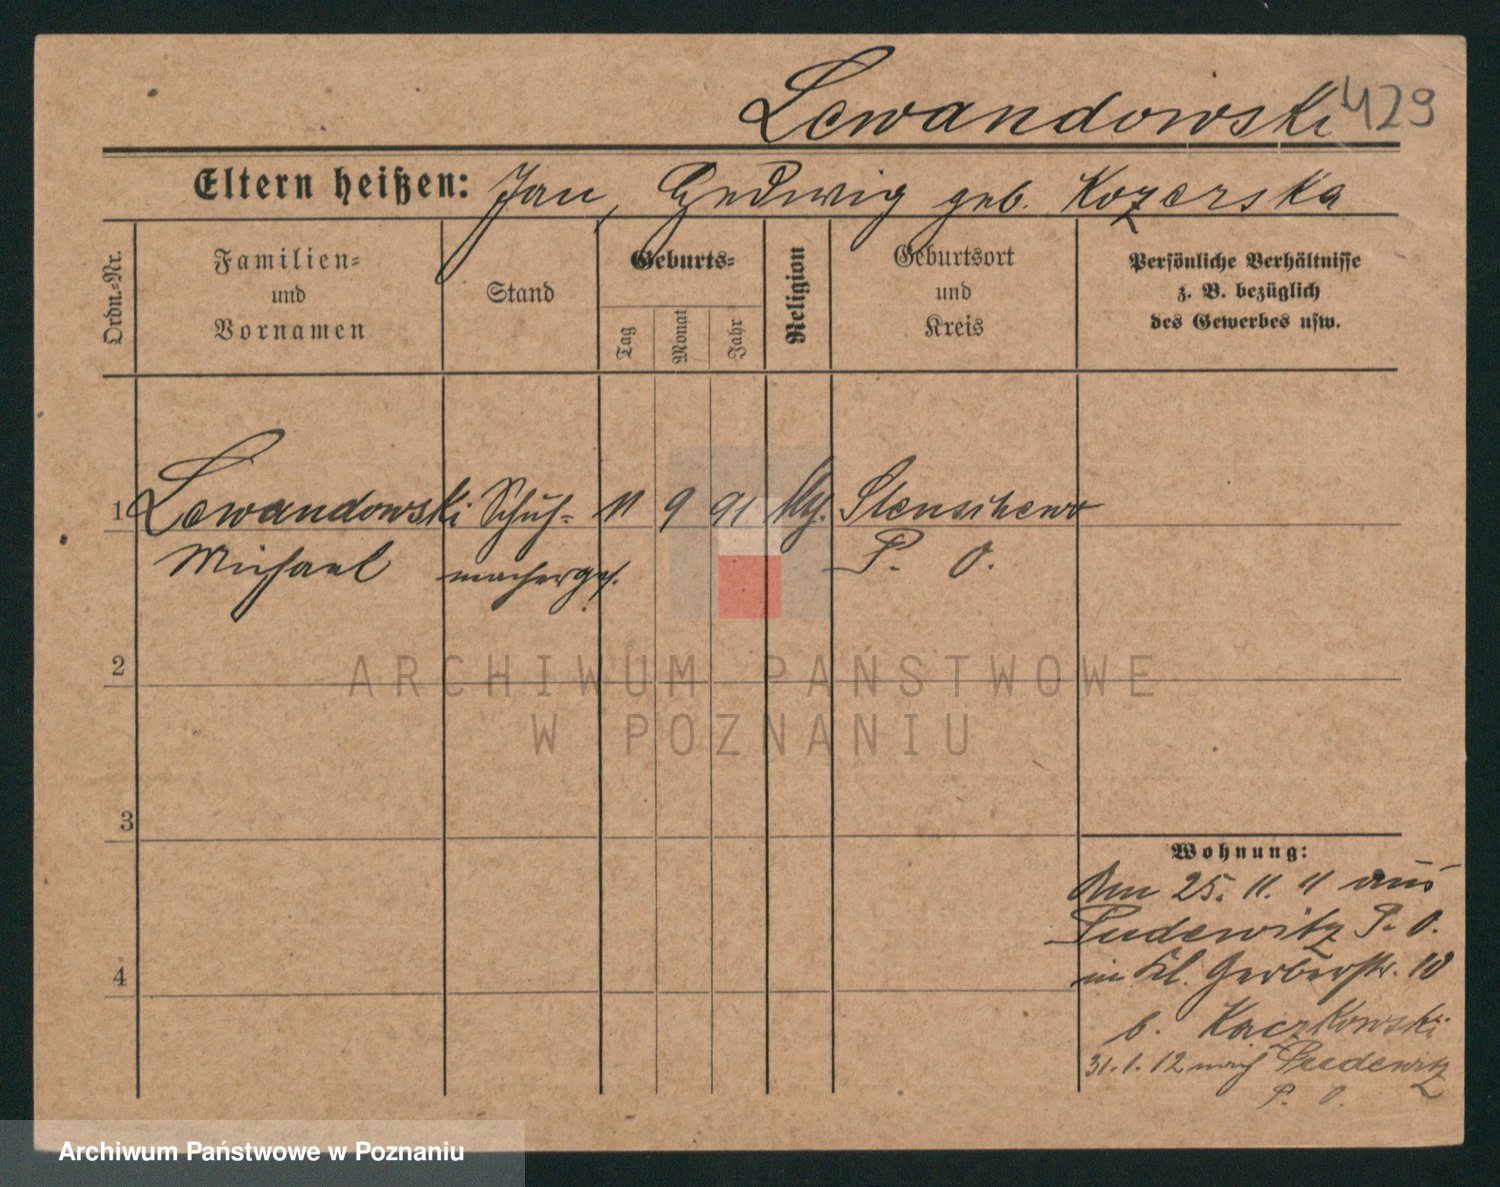 Lewandowski 429
Eltern heißen: Jan, Hedwig geb. Kozerska
Ordn.-Nr.
Familien-
und
Vornamen
Stand
Geburts-
Tag
Monat
Jahr
Religion
Geburtsort
und
Kreis
Persönliche Verhältnisse
z. B. bezüglich
des Gewerbes usw.
1 Lewandowski Schuh- 11 9 91 Stensihewo
Michael machergs. P. O.
2
3
4
Wohnung:
Am 25. 11. 11 aus
Pudewitz P. O.
in Kl. Gerberstr. 10
b. Kaczkowski
31.1.12 nach Pudewitz
P. O.
ARCHIWUM PAŃSTWOWE
W POZNANIU
Archiwum Państwowe w Poznaniu